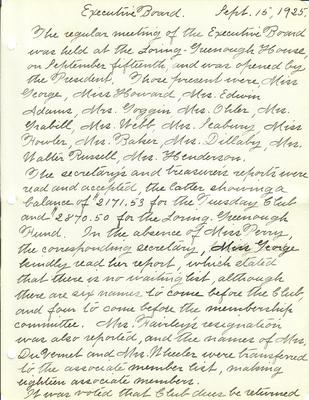 Executive Board. Sept. 15, 1925.
The regular meeting of the Executive Board
was held at the Loring-Greenough House,
on September fifteenth, and was opened by
the President. Those present were Miss
George, Miss Howard, Mrs. Edwin
Adams, Mrs. Goggin, Mrs. Ohler, Mrs.
Grabill, Mrs. Webb, Mrs. Seabury, Miss
Fowler, Mrs. Baker, Mrs. Dillaby, Mrs.
Walter Russell, Mrs. Henderson.
The secretary's and treasurer's reports were
read and accepted, the latter showing a
balance of $2171.53 for the Tuesday Club
and $2870.50 for the Loring-Greenough
Fund. In the absence of Miss Perry,
the corresponding secretary, Miss George
kindly read her report, which stated
that there is no waiting list, although
there are six names to come before the Club,
and four to come before the membership
committee. Mrs. Fairley's resignation
was also reported, and the names of Mrs.
and Mrs. Wheeler were transferred
to the associate member list, making
eighteen associate members.
It was voted that Club dues be returned